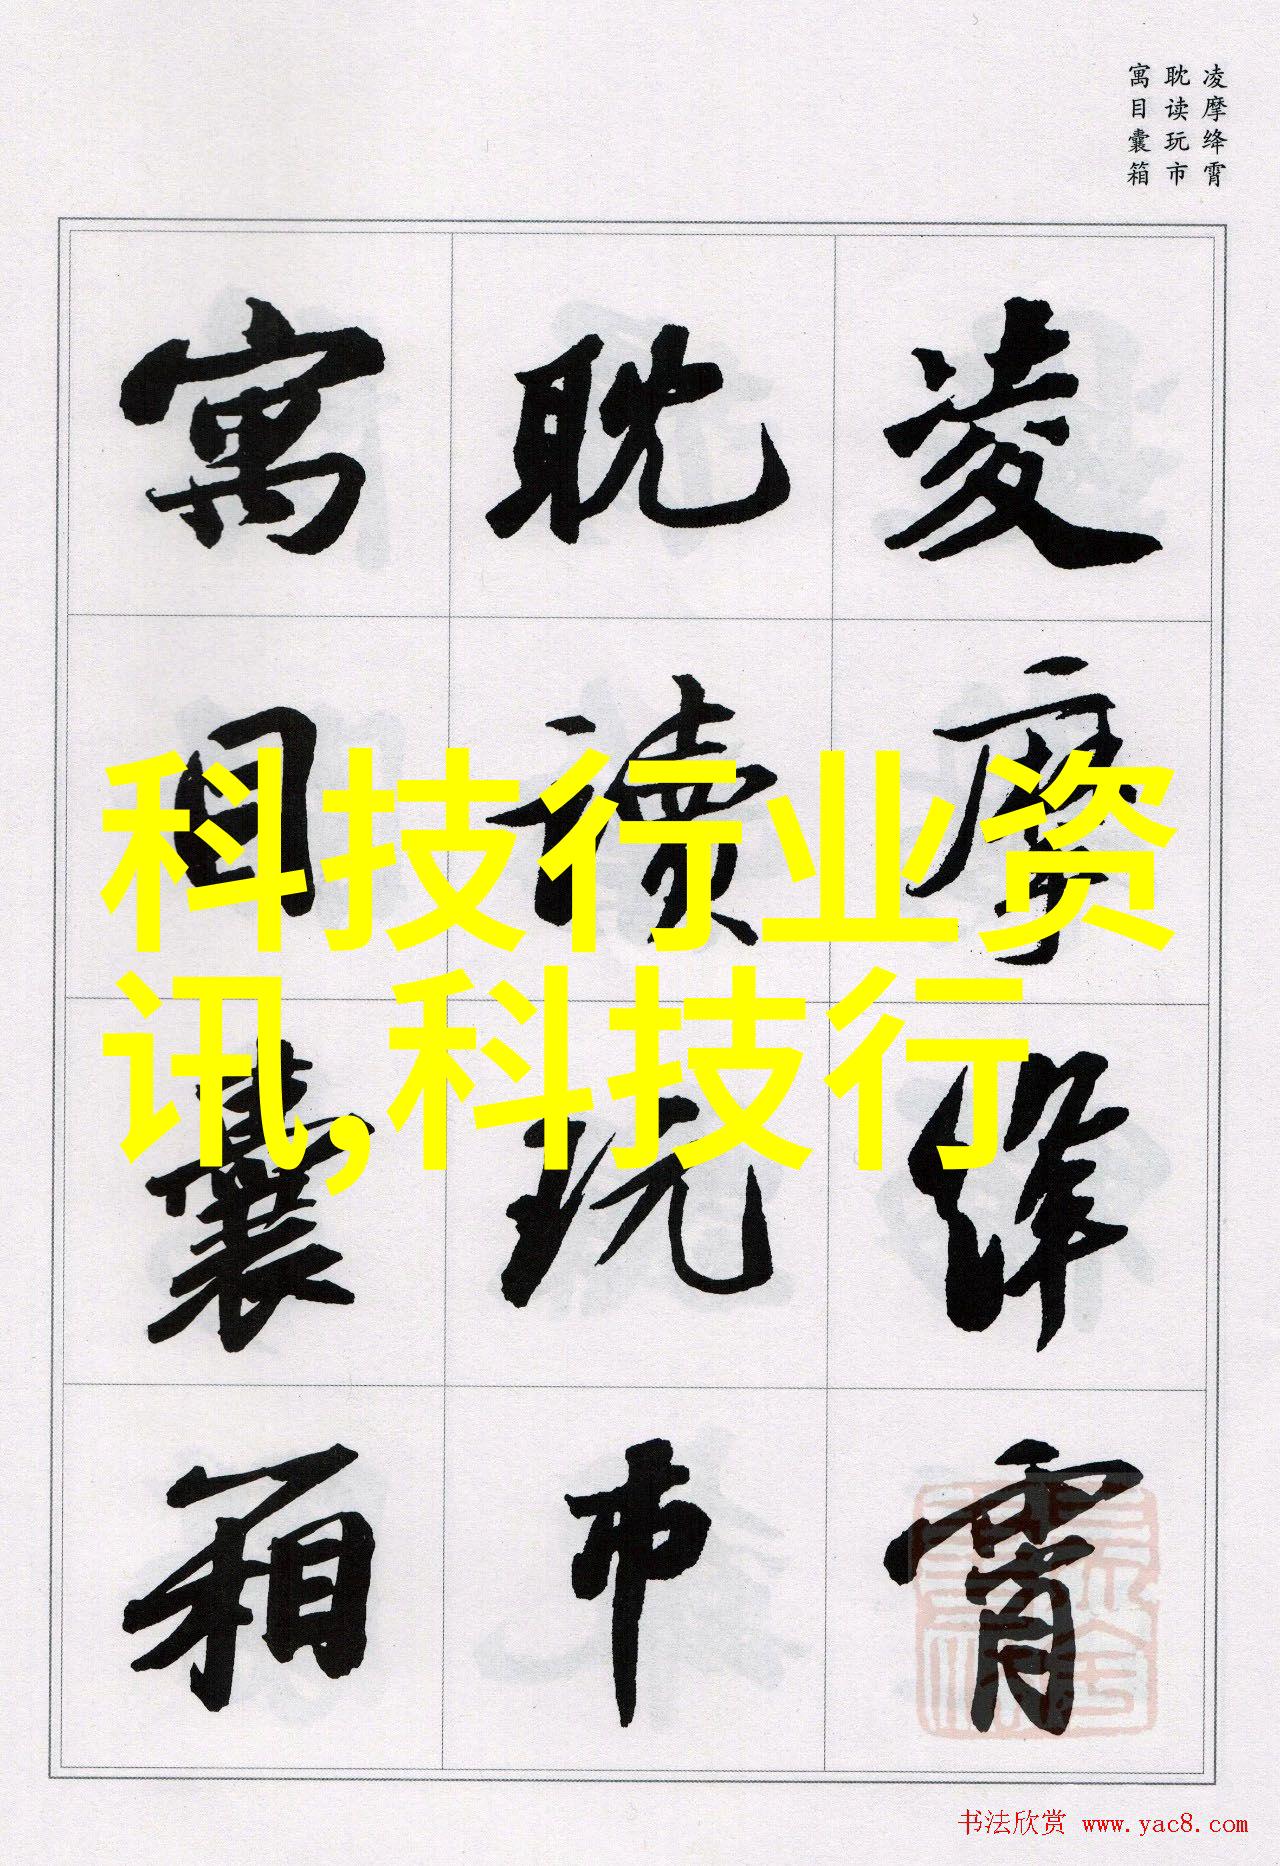 凌摩绛霄
耽读玩市
寓目囊箱
凌摩绛霄
耽讀玩市
寓目囊箱
科技行业资
讯,科技行
书法欣赏 www.yac8.com